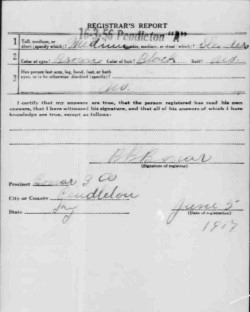 REGISTRAR'S REPORT
16-3-56 Pendleton "A"
1 Tall, medium, or short (specify which)? Medium Slender, medium, or stout (which)? Slender
2 Color of eyes? Brown Color of hair? Black Bald? No
3 Has person lost arm, leg, hand, foot, or both eyes, or is he otherwise disabled (specify)?
No.
I certify that my answers are true, that the person registered has read his own answers, that I have witnessed his signature, and that all of his answers of which I have knowledge are true, except as follows:
(Signature of registrar)
Precinct
City or County Pendleton
State Ky
June 5
(Date of registration)
1917